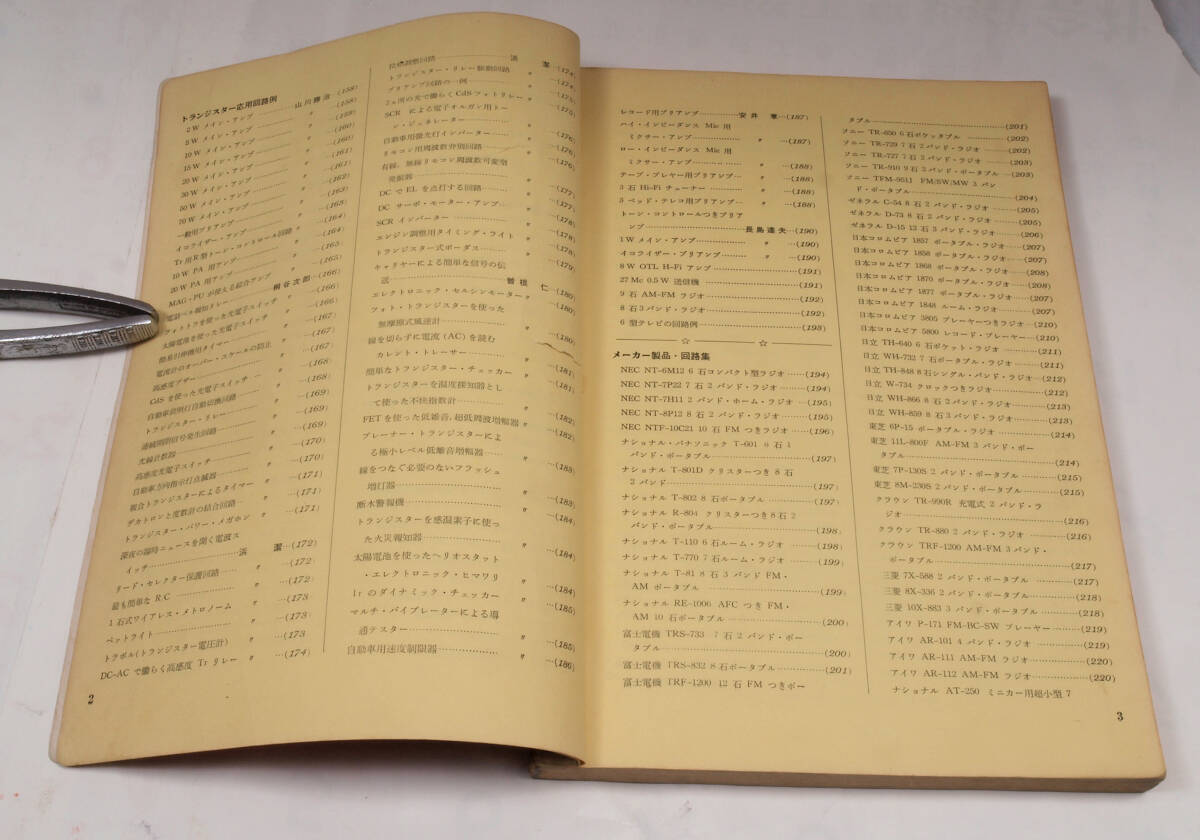 トランジスター応用回路例
2W メイン・アンプ……山川勝治…(158)
5W メイン・アンプ………〃…(158)
10W メイン・アンプ………〃…(159)
15W メイン・アンプ………〃…(160)
20W メイン・アンプ………〃…(160)
30W メイン・アンプ………〃…(161)
50W メイン・アンプ………〃…(161)
70W メイン・アンプ………〃…(162)
一般用プリアンプ………〃…(163)
イコライザー・アンプ………〃…(163)
Tr 用 R 型トーン・コントロール回路〃…(164)
10W PA 用アンプ………〃…(164)
20W PA 用アンプ………〃…(165)
MAG・PU が使える綜合アンプ 〃…(165)
電話ベル報知リレー……桐谷次郎…(166)
フォトトラを使った光電子スイッチ 〃…(166)
太陽電池を使った光電子スイッチ 〃…(167)
簡易引伸機用タイマー………〃…(167)
電流計のオーバー・スケールの防止 〃…(167)
高感度ブザー………〃…(168)
CdS を使った光電子スイッチ…〃…(168)
自動車前照灯自動切換回路…〃…(169)
トランジスター・リレー………〃…(169)
連続開閉信号発生回路………〃…(169)
光線計数器………〃…(170)
高感度光電子スイッチ………〃…(170)
自動車方向指示灯点滅器………〃…(171)
複合トランジスターによるタイマー 〃…(171)
デカトロンと度数計の結合回路…〃…(171)
トランジスター・パワー・メガホン
深夜の臨時ニュースを聞く電波ス
イッチ………浜 潔…(172)
リード・セレクター保護回路…〃…(172)
最も簡単な R/C………〃…(172)
1石式ワイアレス・メトロノーム 〃…(173)
ペットライト………〃…(173)
トラボル(トランジスター電圧計) 〃…(173)
DC-AC で働らく高感度 Tr リレー 〃…(174)
2
位相調整回路………浜 潔…(174)
トランジスター・リレー駆動回路 〃…(174)
プリアンプ回路の一例………〃…(175)
2ヵ所の光で働らく CdS フォトリレー〃…(175)
SCR による電子オルガン用トー
ン・ジェネレーター………〃…(175)
自動車用螢光灯インバーター…〃…(176)
リモコン用周波数弁別回路…〃…(176)
有線, 無線リモコン周波数可変型
発振器………〃…(177)
DC で EL を点灯する回路…〃…(177)
DC サーボ・モーター・アンプ…〃…(178)
SCR インバーター………〃…(178)
エンジン調整用タイミング・ライト 〃…(178)
トランジスター式ボーダス…〃…(179)
キャリヤーによる簡単な信号の伝
送………曽根 仁…(180)
エレクトロニック・セルシンモーター〃…(180)
フォト・トランジスターを使った
無摩擦式風速計………〃…(180)
線を切らずに電流 (AC) を読む
カレント・トレーサー………〃…(181)
簡単なトランジスター・チェッカー 〃…(181)
トランジスターを温度検知器とし
て使った不快指数計………〃…(182)
FETを使った低雑音,超低周波増幅器〃…(182)
プレーナー・トランジスターによ
る極小レベル低雑音増幅器…〃…(183)
線をつなぐ必要のないフラッシュ
増灯器………〃…(183)
断木警報機………〃…(184)
トランジスターを感温素子に使っ
た火災報知器………〃…(184)
太陽電池を使ったヘリオスタット
・エレクトロニック・ヒマワリ 〃…(184)
1τ のダイナミック・チェッカー 〃…(185)
マルチ・バイブレーターによる導
通テスター………〃…(185)
自動車用速度制限器………〃…(186)
レコード用プリアンプ………安井 章…(187)
ハイ・インピーダンス Mic 用
ミクサー・アンプ………〃…(187)
ロー・インピーダンス Mic 用
ミクサー・アンプ………〃…(188)
テープ・プレヤー用プリアンプ…〃…(188)
3石 Hi-Fi チューナー………〃…(188)
5 ベッド・テレコ用プリアンプ…〃…(188)
トーン・コントロールつきプリア
ンプ………長島達夫…(190)
1W メイン・アンプ………〃…(190)
イコライザー・プリアンプ………〃…(190)
8W OTL H-Fi アンプ………(191)
27 Mc 0.5W 送信機………(191)
9石 AM-FM ラジオ………(192)
8石 3バンド・ラジオ………(192)
6 型テレビの回路例………(193)
☆ ☆
メーカー製品・回路集
NEC NT-6M12 6石コンパクト型ラジオ…(194)
NEC NT-7P22 7石2バンド・ラジオ…(194)
NEC NT-7H11 2バンド・ホーム・ラジオ…(195)
NEC NT-8P12 8石2バンド・ラジオ…(195)
NEC NTF-10C21 10石 FM つきラジオ…(196)
ナショナル・パナソニック T-601 6石1
バンド・ポータブル………(197)
ナショナル T-801D クリスターつき8石
2バンド………(197)
ナショナル T-802 8石ポータブル…(197)
ナショナル R-804 クリスターつき8石2
バンド・ポータブル………(198)
ナショナル T-110 6石ルーム・ラジオ…(198)
ナショナル T-770 7石ルーム・ラジオ…(199)
ナショナル T-81 8石3バンド FM・
AM ポータブル………(199)
ナショナル RE-1006 AFC つき FM・
AM 10石ポータブル………(200)
富士電機 TRS-733 7石2バンド・ポー
タブル………(200)
富士電機 TRS-832 8石ポータブル…(201)
富士電機 TRF-1200 12石 FM つきポー
タブル………(201)
ソニー TR-650 6石ポケッタブル…(202)
ソニー TR-729 7石2バンド・ラジオ…(202)
ソニー TR-727 7石2バンド・ラジオ…(203)
ソニー TR-910 9石2バンド・ポータブル…(203)
ソニー TFM-951J FM/SW/MW 3バン
ド・ポータブル………(204)
ゼネラル C-54 8石2バンド・ラジオ…(205)
ゼネラル D-73 8石2バンド・ラジオ…(205)
ゼネラル D-15 12石3バンド・ラジオ…(206)
日本コロムビア 1857 ポータブル・ラジオ…(207)
日本コロムビア 1858 ポータブル・ラジオ…(207)
日本コロムビア 1868 ポータブル・ラジオ…(208)
日本コロムビア 1870 ポータブル・ラジオ…(207)
日本コロムビア 1877 ポータブル・ラジオ…(208)
日本コロムビア 1848 ルーム・ラジオ…(207)
日本コロムビア 3805 プレーヤーつきラジオ…(210)
日本コロムビア 5800 レコード・プレーヤー…(210)
日立 TH-640 6石ポケット・ラジオ…(211)
日立 WH-732 7石ポータブル・ラジオ…(211)
日立 TH-848 8石シングル・バンド・ラジオ…(212)
日立 W-734 クロックつきラジオ…(212)
日立 WH-866 8石2バンド・ラジオ…(213)
日立 WH-859 8石3バンド・ラジオ…(213)
東芝 6P-15 ポータブル・ラジオ…(214)
東芝 11L-800F AM-FM 3バンド・ポー
タブル………(214)
東芝 7P-130S 2バンド・ポータブル…(215)
東芝 8M-230S 2バンド・ポータブル…(215)
クラウン TR-990R 充電式2バンド・ラ
ジオ………(216)
クラウン TR-880 2バンド・ラジオ…(216)
クラウン TRF-1200 AM-FM 3バンド・
ポータブル………(217)
三菱 7X-588 2バンド・ポータブル…(217)
三菱 8X-336 2バンド・ポータブル…(218)
三菱 10X-883 3バンド・ポータブル…(218)
アイワ P-171 FM-BC-SW プレーヤー…(219)
アイワ AR-101 4バンド・ラジオ…(219)
アイワ AR-111 AM-FM ラジオ…(220)
アイワ AR-112 AM-FM ラジオ…(220)
ナショナル AT-250 ミニカー用超小型7
3